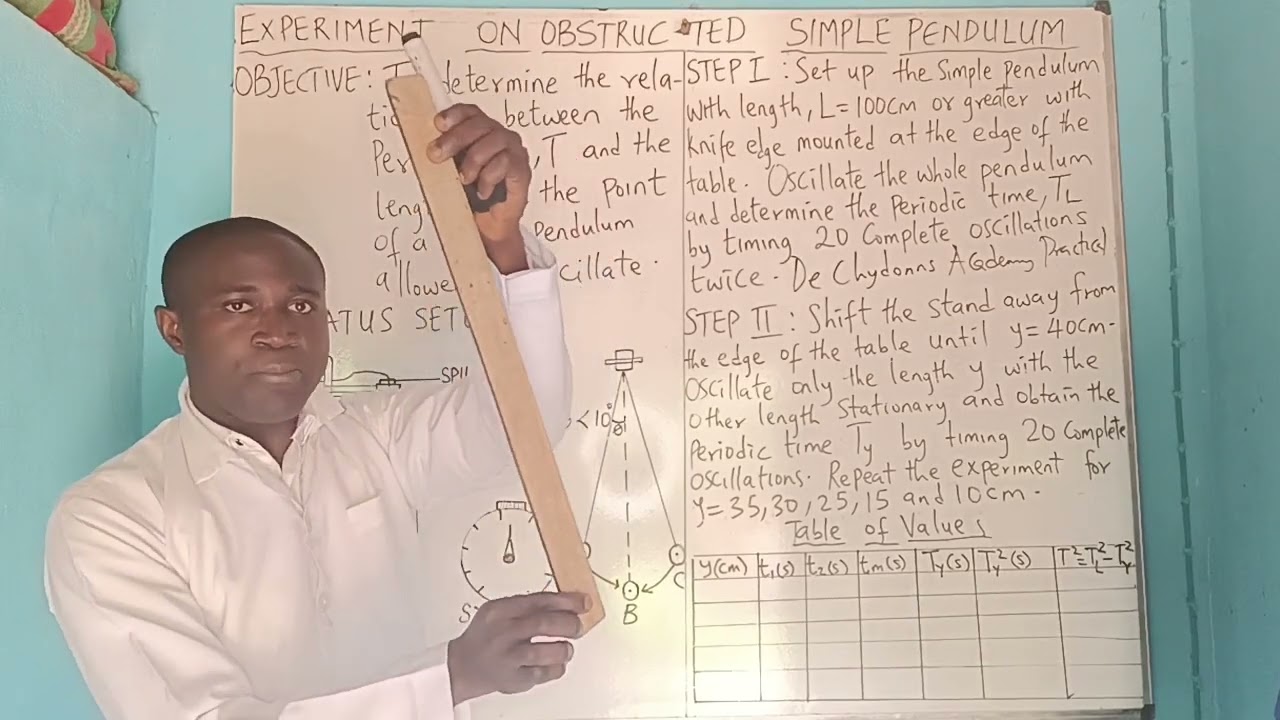 EXPERIMENT ON OBSTRUCTED SIMPLE PENDULUM
OBJECTIVE: T determine the rela-
ti between the
Per , T and the
leng the point
of a Pendulum
allowe cillate.
ATUS SET
SPII
< 10°
B
C
S
STEP I : Set up the Simple pendulum
with length, L = 100cm or greater with
knife edge mounted at the edge of the
table. Oscillate the whole pendulum
and determine the Periodic time, TL
by timing 20 Complete oscillations
twice. De Chydonns Academy Practical
STEP II : Shift the stand away from
the edge of the table until y = 40cm.
Oscillate only the length y with the
other length stationary and obtain the
Periodic time Ty by timing 20 Complete
oscillations. Repeat the experiment for
y = 35, 30, 25, 15 and 10cm.
Table of Values
y(cm) t₁(s) t₂(s) tm(s) Ty(s) Ty²(s) T²=TL²-Ty²